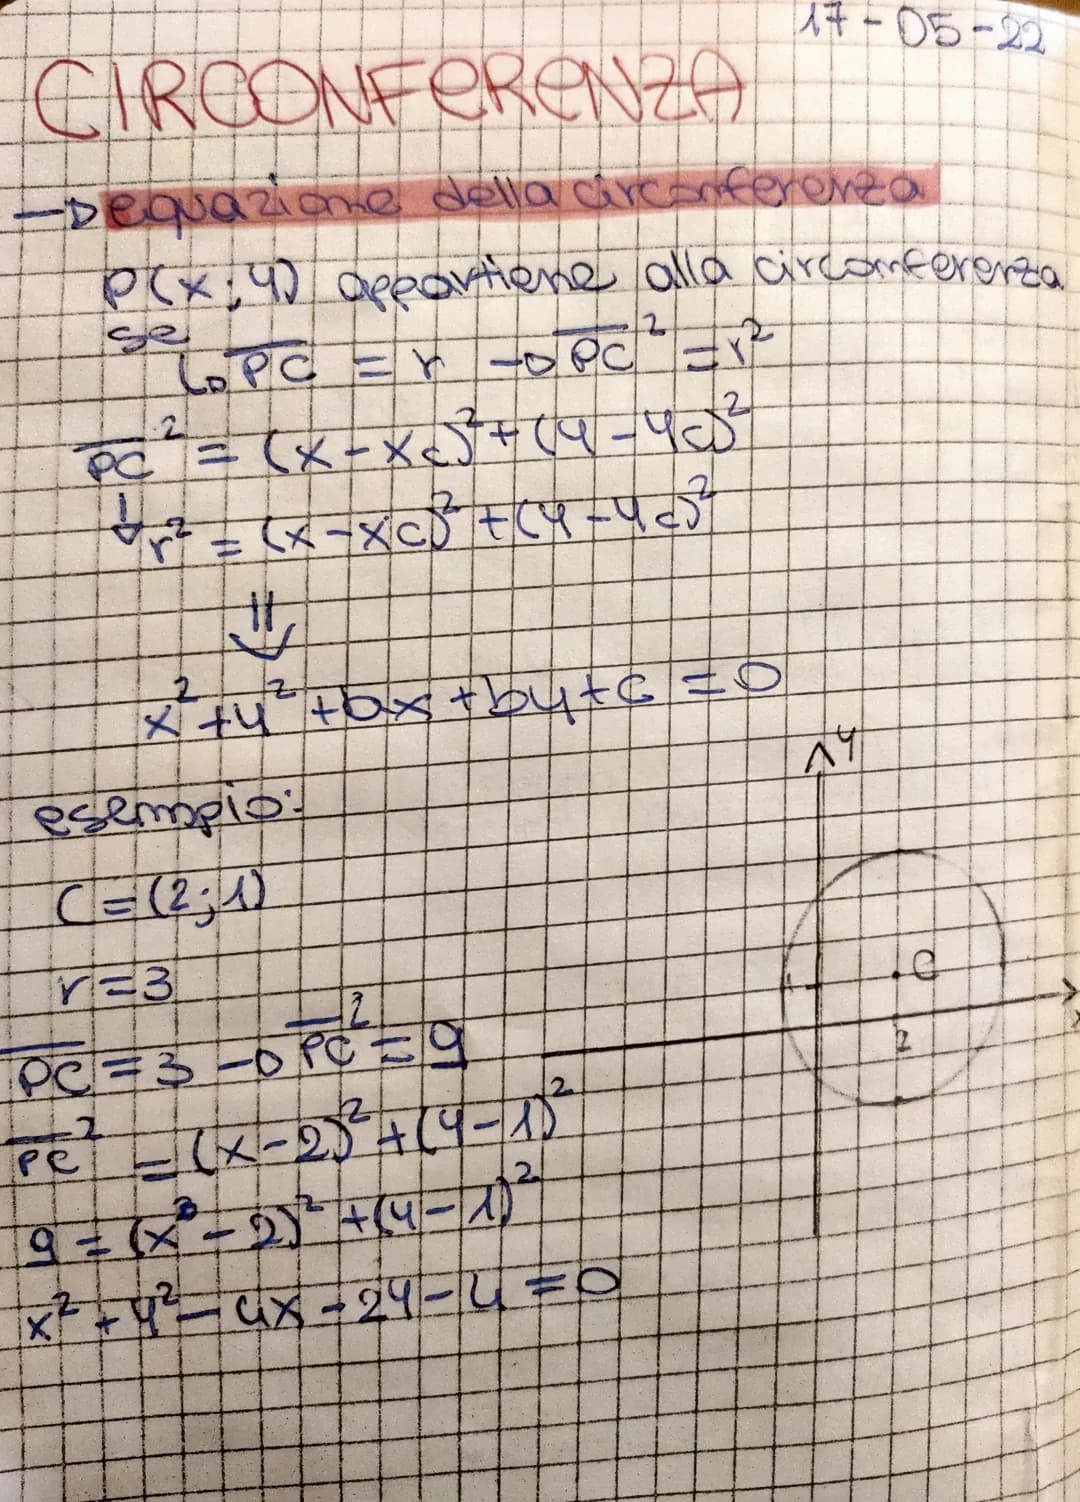 17-05-22
CIRCONFERENZA
→ equazione della circonferenza
P(x;y) appartiene alla circonferenza
se
↳ P̅C̅ = r → P̅C̅² = r²
P̅C̅² = (x-xc)²+(y-yc)²
↓ r² = (x-xc)²+(y-yc)²
⇓
x²+y²+ax+by+c=0
y
esempio:
C=(2;1)
C
r=3
1
x
2
P̅C̅=3 → P̅C̅²=9
P̅C̅² = (x-2)²+(y-1)²
9 = (x-2)²+(y-1)²
x²+y²-4x-2y-4=0